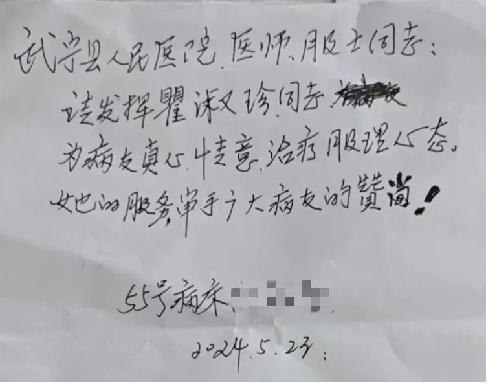 武宁县人民医院、医师、服士同志：
请发挥瞿淑又珍同志
为病友真心、情意、治疗服理心态。
她的服务单手广大病友的赞尚！
55号病床、
2024.5.23：